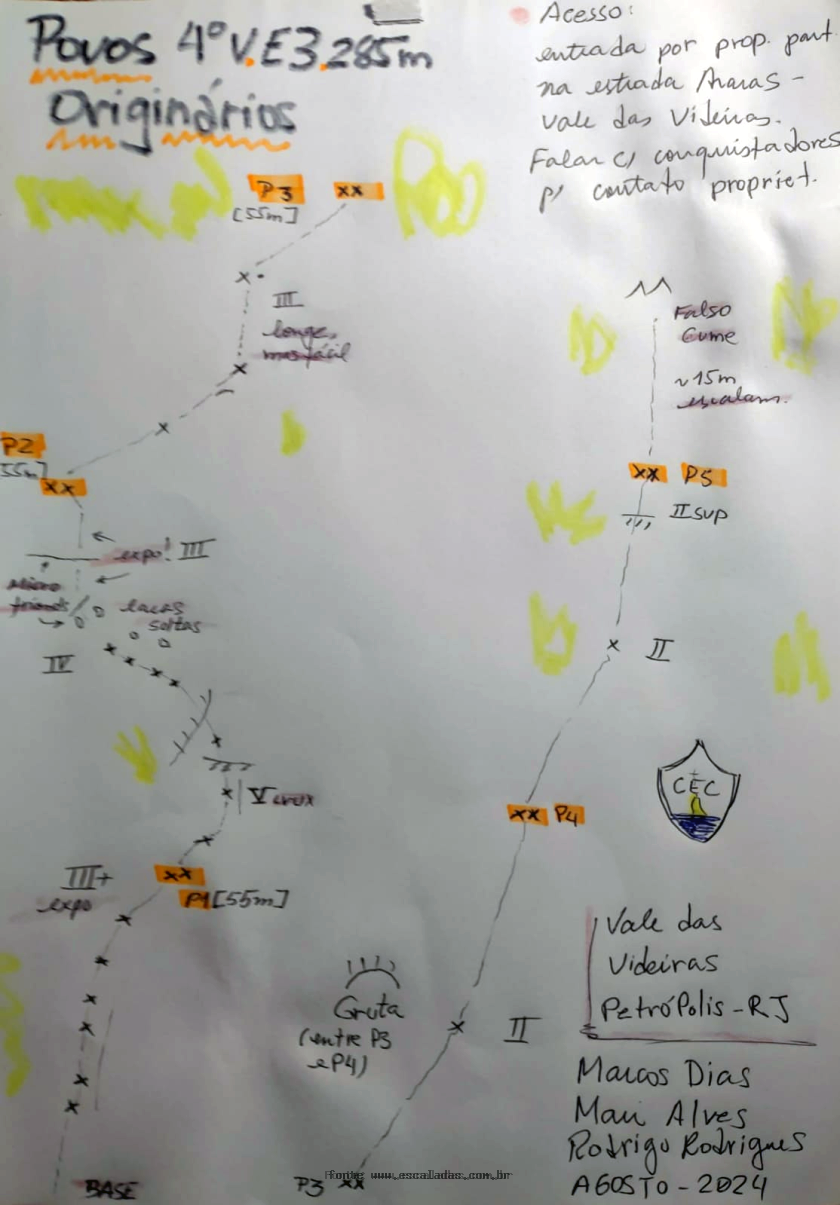 Povos 4º V.E3.285m
Originários
Acesso:
entrada por prop. part.
na estrada Araras -
Vale das Videiras.
Falar c/ conquistadores
p/ contato propriet.
P3
[55m]
xx
x
III
longe,
mas fácil
x
x
P2
55m]
xx
expo! III
Micro
friends
lacas
soltas
IV
x x x x
x
x
V crux
x
xx
P1 [55m]
III+
expo
x
x
x
x
x
x
BASE
Falso
Cume
~15m
escalam.
xx P5
II sup
x II
xx P4
CEC
Gruta
(entre P3
e P4)
x II
P3 xx
Vale das
Videiras
Petrópolis - RJ
Marcos Dias
Mari Alves
Rodrigo Rodrigues
AGOSTO - 2024
fonte: www.escaladas.com.br